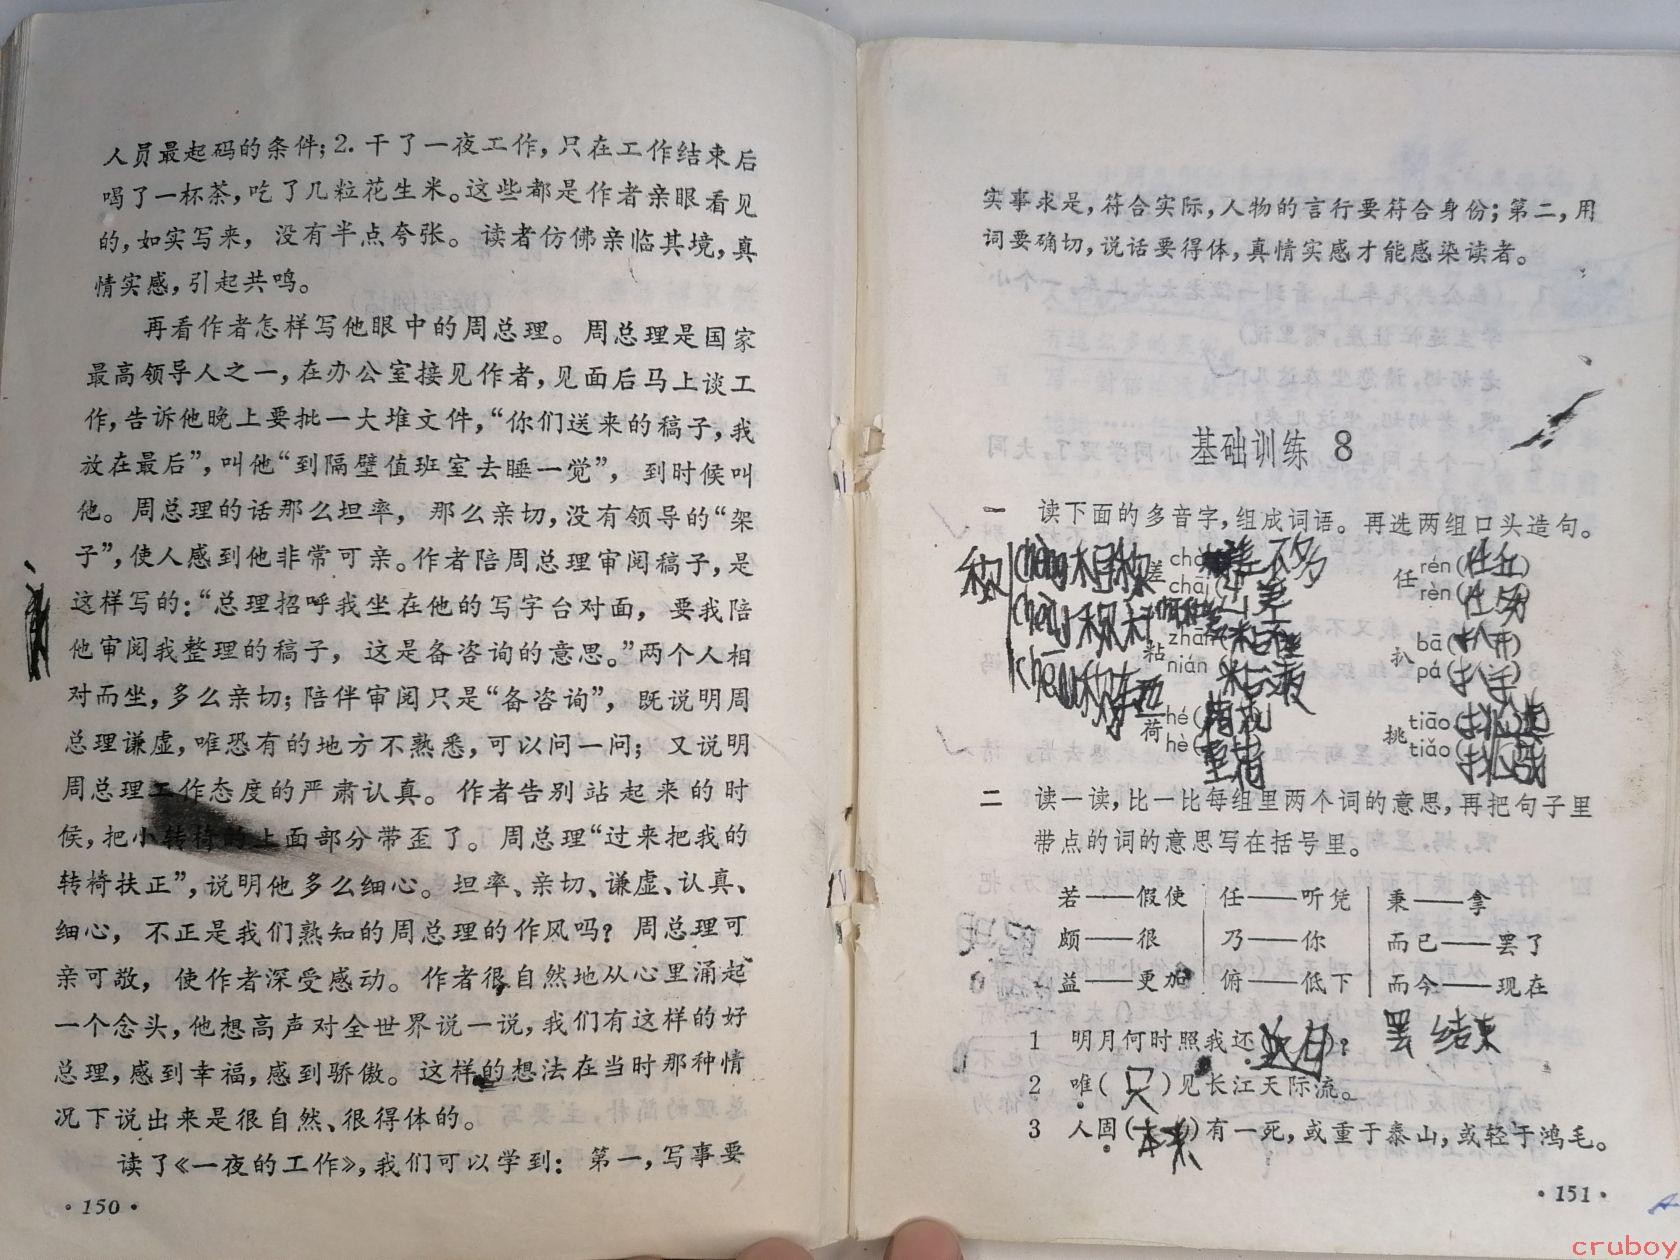 人员最起码的条件；2. 干了一夜工作，只在工作结束后
喝了一杯茶，吃了几粒花生米。这些都是作者亲眼看见
的，如实写来，没有半点夸张。读者仿佛亲临其境，真
情实感，引起共鸣。
再看作者怎样写他眼中的周总理。周总理是国家
最高领导人之一，在办公室接见作者，见面后马上谈工
作，告诉他晚上要批一大堆文件，“你们送来的稿子，我
放在最后”，叫他“到隔壁值班室去睡一觉”，到时候叫
他。周总理的话那么坦率，那么亲切，没有领导的“架
子”，使人感到他非常可亲。作者陪周总理审阅稿子，是
这样写的：“总理招呼我坐在他的写字台对面，要我陪
他审阅我整理的稿子，这是备咨询的意思。”两个人相
对而坐，多么亲切；陪伴审阅只是“备咨询”，既说明周
总理谦虚，唯恐有的地方不熟悉，可以问一问；又说明
周总理工作态度的严肃认真。作者告别站起来的时
候，把小转椅的上面部分带歪了。周总理“过来把我的
转椅扶正”，说明他多么细心。坦率、亲切、谦虚、认真、
细心，不正是我们熟知的周总理的作风吗？周总理可
亲可敬，使作者深受感动。作者很自然地从心里涌起
一个念头，他想高声对全世界说一说，我们有这样的好
总理，感到幸福，感到骄傲。这样的想法在当时那种情
况下说出来是很自然、很得体的。
读了《一夜的工作》，我们可以学到：第一，写事要
·150·
实事求是，符合实际，人物的言行要符合身份；第二，用
词要确切，说话要得体，真情实感才能感染读者。
基础训练 8
一 读下面的多音字，组成词语。再选两组口头造句。
称 chèn 相称 差 差不多 任 rén(任丘)
chāi( 差 rèn(任务)
粘 zhān( 扒 bā(扒开)
nián 粘液 pá(扒手)
荷 hé( 荷 挑 tiāo(挑选
hè( 重荷 tiǎo(挑战
二 读一读，比一比每组里两个词的意思，再把句子里
带点的词的意思写在括号里。
若——假使 任——听凭 秉——拿
颇——很 乃——你 而已——罢了
益——更加 俯——低下 而今——现在
1 明月何时照我还( )？ 罢 结束
2 唯(只)见长江天际流。
3 人固(本来)有一死，或重于泰山，或轻于鸿毛。
·151·
cruboy